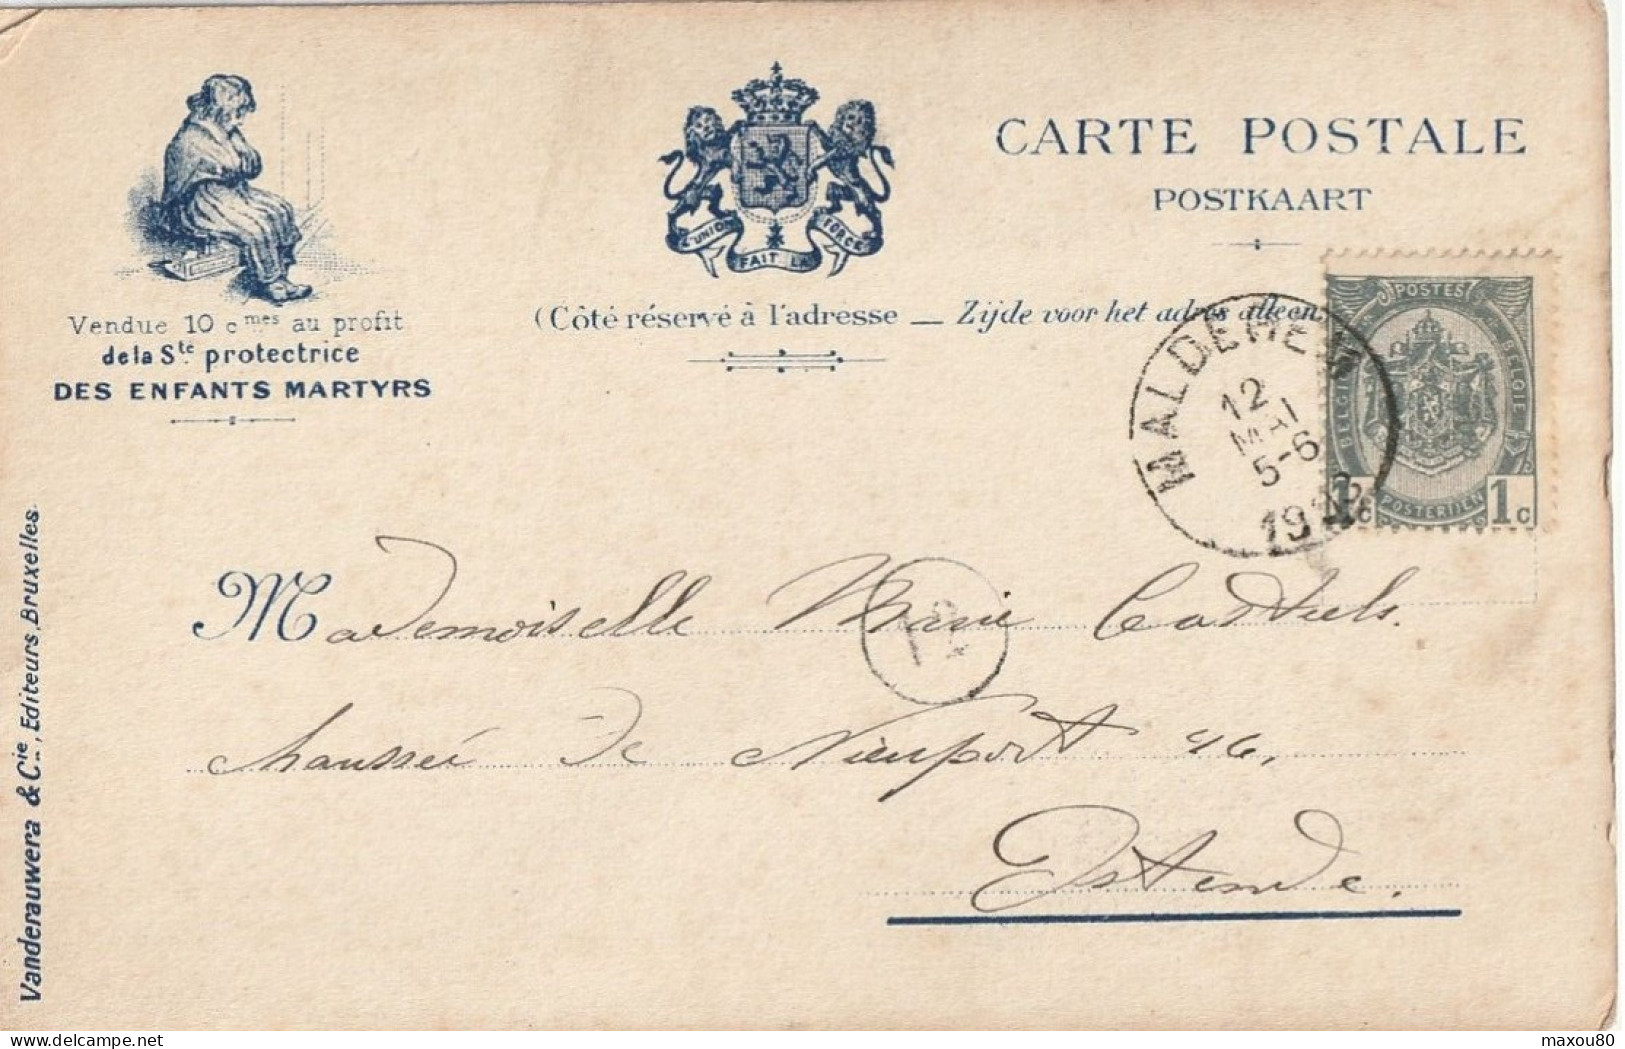 CARTE POSTALE
POSTKAART
L'UNION FAIT LA FORCE
Vendue 10 cmes au profit
de la Sté protectrice
DES ENFANTS MARTYRS
(Côté réservé à l'adresse — Zijde voor het adres alleen.
POSTES
BELGIQUE
BELGIE
1c
POSTERIJEN
1c
MALDEGEM
12
MAI
5-6
Mademoiselle Marie Casteels.
12
chaussée de Nieuport 46,
Ostende.
Vanderauwera & Cie, Editeurs, Bruxelles.
delcampe.net
maxou80